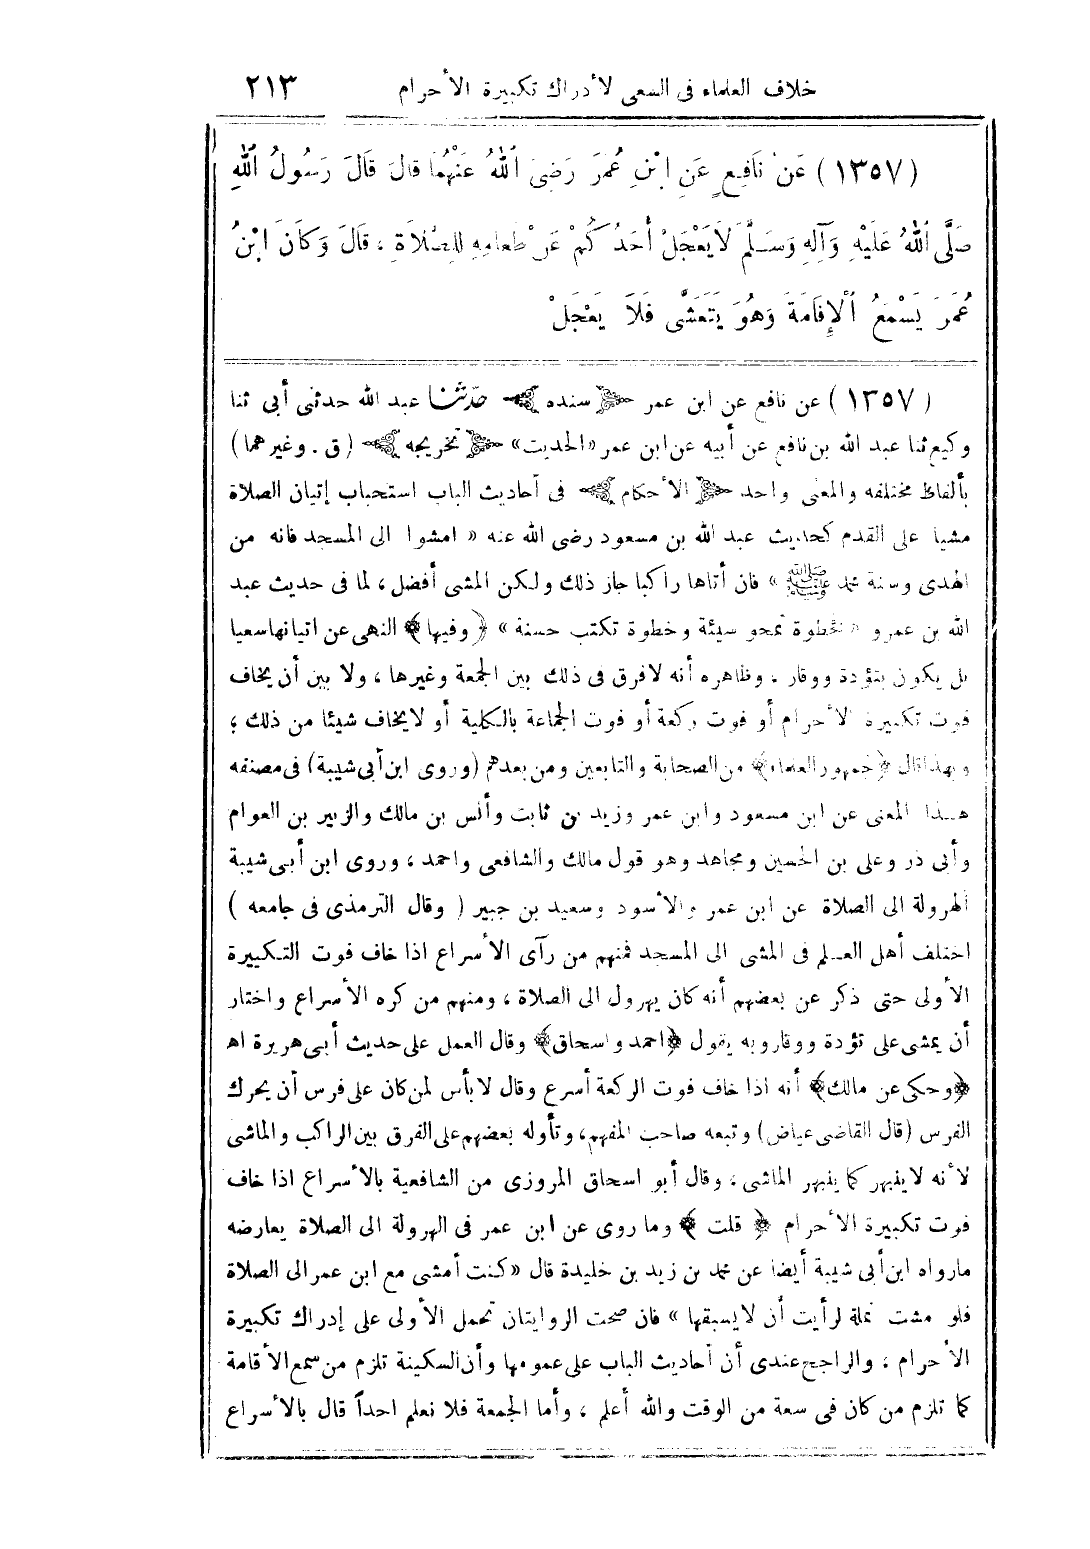 خلاف العلماء فى السعى لأدراك تكبيرة الأحرام ٢١٣
(١٣٥٧) عَنْ نَافِعٍ عَنِ ابْنِ عُمَرَ رَضِىَ اللهُ عَنْهُمَا قَالَ قَالَ رَسُولُ اللهِ
صَلَّى اللهُ عَلَيْهِ وَآلِهِ وَسَلَّمَ لَا يَعْجَلْ أَحَدُكُمْ عَنْ طَعَامِهِ لِلصَّلَاةِ ، قَالَ وَكَانَ ابْنُ
عُمَرَ يَسْمَعُ الْإِقَامَةَ وَهُوَ يَتَعَشَّى فَلَا يَعْجَلْ
(١٣٥٧) عن نافع عن ابن عمر ﴿سنده﴾ حدّثنا عبد الله حدثنى أبى ثنا
وكيع ثنا عبد الله بن نافع عن أبيه عن ابن عمر «الحديث» ﴿تخريجه﴾ (ق . وغيرهما)
بألفاظ مختلفه والمعنى واحد ﴿الأحكام﴾ فى أحاديث الباب استحباب إتيان الصلاة
مشيا على القدم كحديث عبد الله بن مسعود رضى الله عنه « امشوا الى المسجد فانه من
الهدى وسنة محمد ﷺ » فان أتاها راكبا جاز ذلك ولكن المشى أفضل ، لما فى حديث عبد
الله بن عمرو « فخطوة تمحو سيئة وخطوة تكتب حسنة » ﴿وفيها﴾ النهى عن اتيانها سعيا
بل يكون بتؤدة ووقار ، وظاهره أنه لا فرق فى ذلك بين الجمعة وغيرها ، ولا بين أن يخاف
فوت تكبيرة الأحرام أو فوت ركعة أو فوت الجماعة بالكلية أو لا يخاف شيئا من ذلك ؛
وبهذا قال ﴿جمهور العلماء﴾ من الصحابة والتابعين ومن بعدهم (وروى ابن أبى شيبة) فى مصنفه
هذا المعنى عن ابن مسعود وابن عمر وزيد بن ثابت وأنس بن مالك والزبير بن العوام
وأبى ذر وعلى بن الحسين ومجاهد وهو قول مالك والشافعى واحمد ، وروى ابن أبى شيبة
الهرولة الى الصلاة عن ابن عمر والأسود وسعيد بن جبير ( وقال الترمذى فى جامعه )
اختلف أهل العلم فى المشى الى المسجد فمنهم من رآى الأسراع اذا خاف فوت التكبيرة
الأولى حتى ذكر عن بعضهم أنه كان يهرول الى الصلاة ، ومنهم من كره الأسراع واختار
أن يمشى على تؤدة ووقار وبه يقول ﴿احمد واسحاق﴾ وقال العمل على حديث أبى هريرة اه
﴿وحكى عن مالك﴾ أنه اذا خاف فوت الركعة أسرع وقال لا بأس لمن كان على فرس أن يحرك
الفرس (قال القاضى عياض) وتبعه صاحب المفهم، وتأوله بعضهم على الفرق بين الراكب والماشى
لأنه لا ينبهر كما ينبهر الماشى ، وقال أبو اسحاق المروزى من الشافعية بالأسراع اذا خاف
فوت تكبيرة الأحرام ﴿ قلت ﴾ وما روى عن ابن عمر فى الهرولة الى الصلاة يعارضه
مارواه ابن أبى شيبة أيضا عن محمد بن زيد بن خليدة قال «كنت أمشى مع ابن عمر الى الصلاة
فلو مشت نملة لرأيت أن لا يسبقها » فان صحت الروايتان تحمل الأولى على إدراك تكبيرة
الأحرام ، والراجح عندى أن أحاديث الباب على عمومها وأن السكينة تلزم من سمع الأقامة
كما تلزم من كان فى سعة من الوقت والله أعلم ، وأما الجمعة فلا نعلم احداً قال بالأسراع